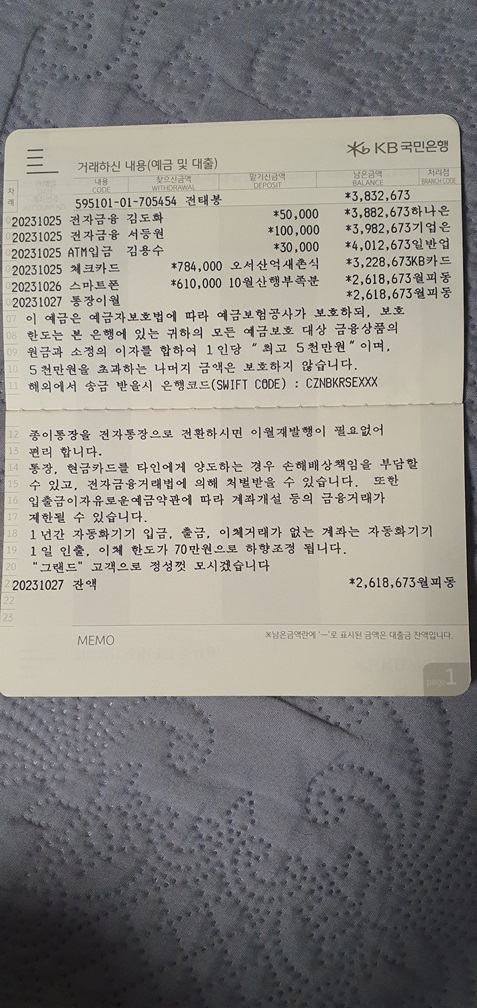 KB 국민은행
거래하신 내용(예금 및 대출)
차례 내용 CODE 찾으신금액 WITHDRAWAL 맡기신금액 DEPOSIT 남은금액 BALANCE 처리점 BRANCH CODE
595101-01-705454 전태봉 *3,832,673
20231025 전자금융 김도화 *50,000 *3,882,673하나은
20231025 전자금융 서등원 *100,000 *3,982,673기업은
20231025 ATM입금 김용수 *30,000 *4,012,673일반업
20231025 체크카드 *784,000 오서산억새촌식 *3,228,673KB카드
20231026 스마트폰 *610,000 10월산행부족분 *2,618,673월피동
20231027 통장이월 *2,618,673월피동
07 이 예금은 예금자보호법에 따라 예금보험공사가 보호하되, 보호
08 한도는 본 은행에 있는 귀하의 모든 예금보호 대상 금융상품의
09 원금과 소정의 이자를 합하여 1인당 "최고 5천만원"이며,
10 5천만원을 초과하는 나머지 금액은 보호하지 않습니다.
11 해외에서 송금 받을시 은행코드(SWIFT CODE) : CZNBKRSEXXX
12 종이통장을 전자통장으로 전환하시면 이월재발행이 필요없어
13 편리 합니다.
14 통장, 현금카드를 타인에게 양도하는 경우 손해배상책임을 부담할
15 수 있고, 전자금융거래법에 의해 처벌받을 수 있습니다. 또한
16 입출금이자유로운예금약관에 따라 계좌개설 등의 금융거래가
17 제한될 수 있습니다.
18 1년간 자동화기기 입금, 출금, 이체거래가 없는 계좌는 자동화기기
19 1일 인출, 이체 한도가 70만원으로 하향조정 됩니다.
20 "그랜드" 고객으로 정성껏 모시겠습니다
20231027 잔액 *2,618,673월피동
22
23
MEMO ※남은금액란에 '―'로 표시된 금액은 대출금 잔액입니다.
page 1